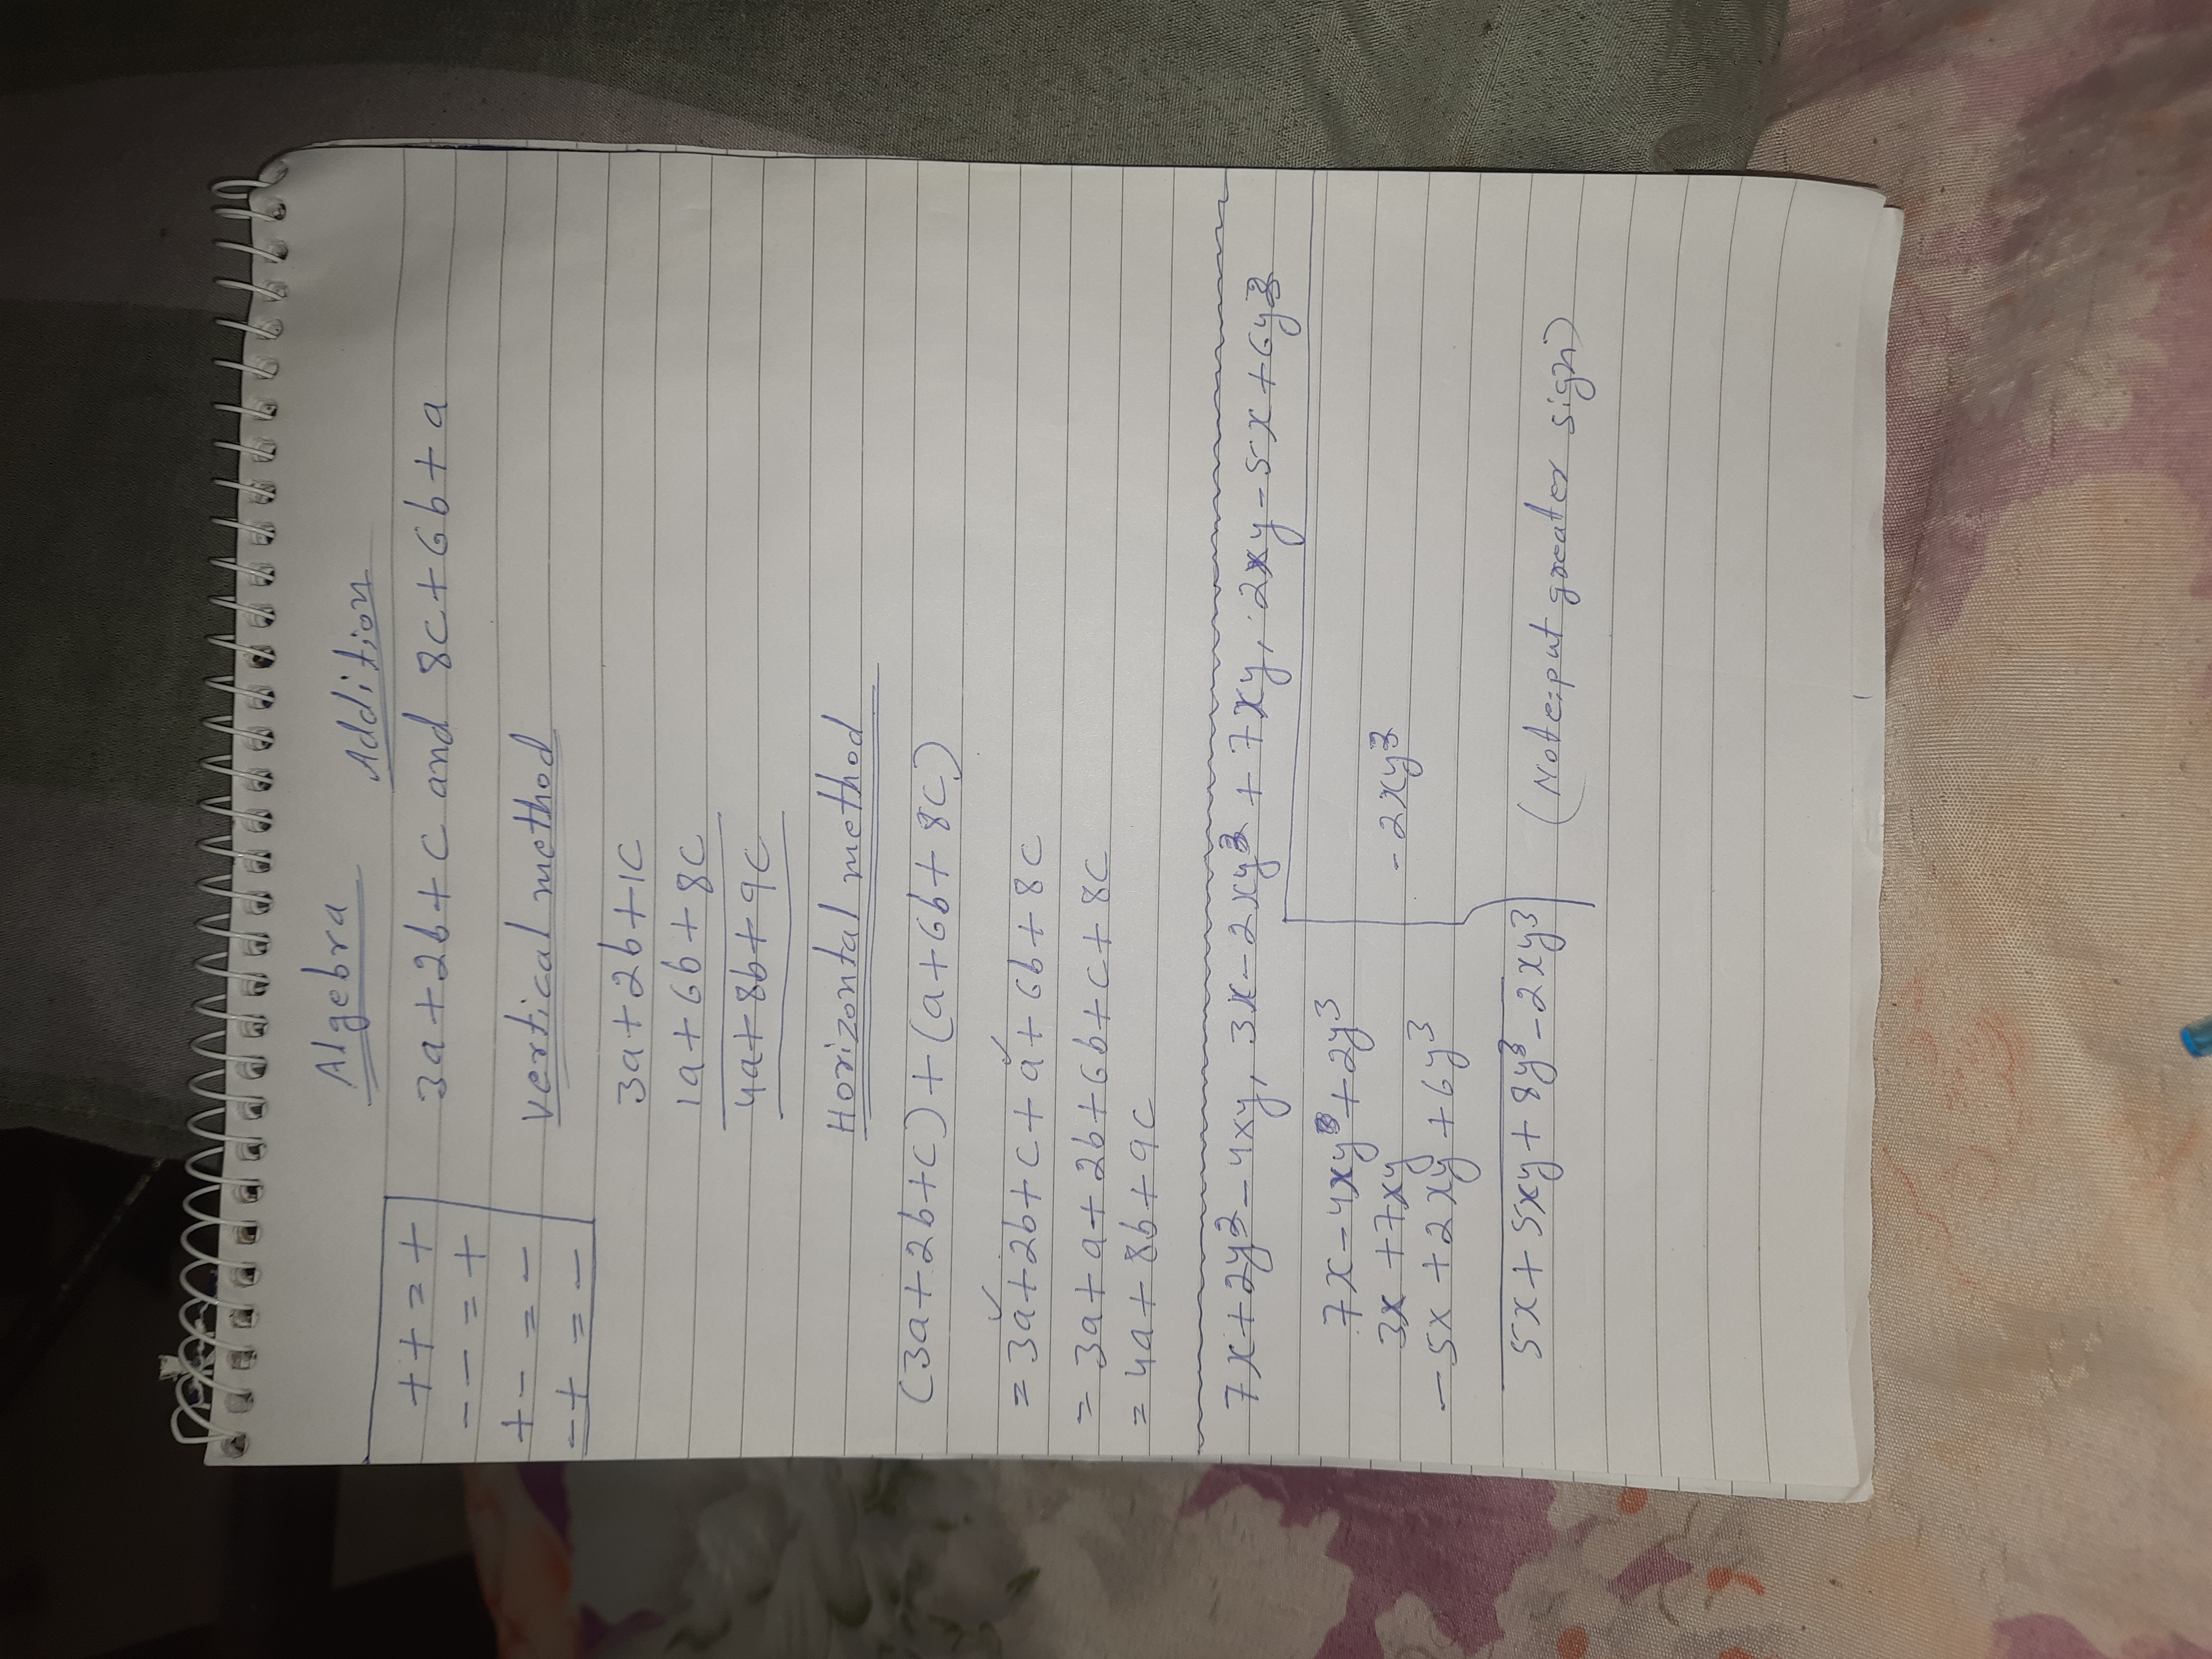 Algebra
Addition
+ + = +
- - = +
+ - = -
- + = -
3a+2b+c and 8c+6b+a
vertical method
3a+2b+1c
1a+6b+8c
4a+8b+9c
Horizontal method
(3a+2b+c)+(a+6b+8c)
= 3a+2b+c+a+6b+8c
= 3a+a+2b+6b+c+8c
= 4a+8b+9c
7x+2y³-4xy, 3x-2xy³+7xy, 2xy-5x+6y³
7x-4xy+2y³
3x+7xy
-5x+2xy+6y³
5x+5xy+8y³-2xy³
-2xy³
(Note:put greater sign)